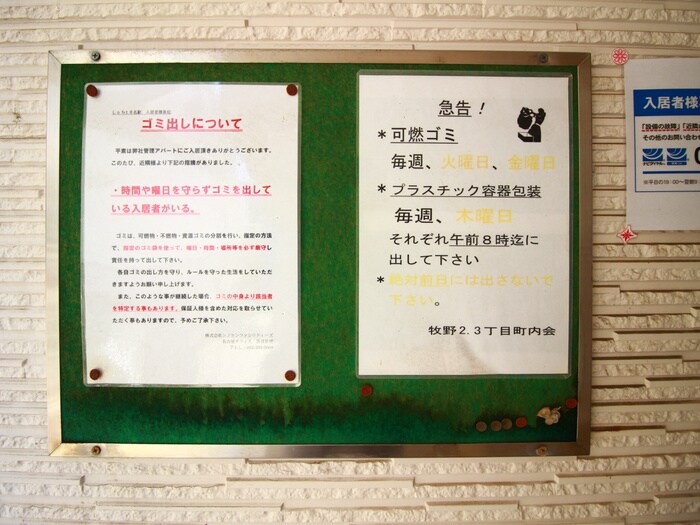 ゴミ出しについて
平素は弊社管理アパートにご入居頂きありがとうございます。
このたび、近隣様より下記の指摘がありました。
・時間や曜日を守らずゴミを出して
いる入居者がいる。
ゴミは、可燃物・不燃物・資源ゴミの分別を行い、指定の方法
で、指定のゴミ袋を使って、曜日・時間・場所等を必ず厳守し
責任を持って出して下さい。
各自ゴミの出し方を守り、ルールを守った生活をしていただ
きますようお願い申し上げます。
また、このような事が継続した場合、ゴミの中身より該当者
を特定する事もあります。保証人様を含めた対応を取らせてい
ただく事もありますので、予めご了承下さい。
急告！
＊可燃ゴミ
毎週、火曜日、金曜日
＊プラスチック容器包装
毎週、木曜日
それぞれ午前８時迄に
出して下さい
＊絶対前日には出さないで
下さい。
牧野２.３丁目町内会
入居者様
「設備の故障」「近隣
その他のお問い合わせ